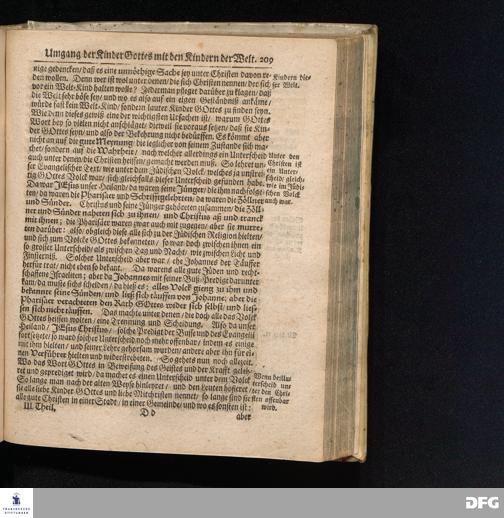 Umgang der Kinder Gottes mit den Kindern der Welt. 209
nige gedencken/ daß es eine unnöthige Sache sey unter Christen davon re-
den wollen. Denn wer ist wol unter denen/ die sich Christen nennen/ der sich
vor ein Welt-Kind halten wolle? Jederman pfleget darüber zu klagen/ daß
die Welt sehr böse sey/ und wo es also auf ein eigen Geständniß ankäme/
würde fast kein Welt-Kind/ sondern lauter Kinder GOttes zu finden seyn.
Wie denn dieses gewiß eine der wichtigsten Ursachen ist/ warum GOttes
Wort bey so vielen nicht anschläget/ dieweil sie voraus setzen/ daß sie Kin-
der GOttes seyn/ und also der Bekehrung nicht bedürffen. Es kömmt aber
nicht an auf die gute Meynung/ die ieglicher von seinem Zustande sich ma-
chet/ sondern auf die Wahrheit/ nach welcher allerdings ein Unterscheid
auch unter denen die Christen heissen/ gemacht werden muß. So lehret un-
ser Evangelischer Text/ wie unter dem Jüdischen Volck/ welches ja unstrei-
tig GOttes Volck war/ sich gleichfalls dieser Unterscheid gefunden habe.
Da war JEsus unser Heiland/ da waren seine Jünger/ die ihm nachfolg-
ten/ da waren die Pharisäer und Schrifftgelehrten/ da waren die Zöllner
und Sünder. Christus und seine Jünger gehöreten zusammen/ die Zöll-
ner und Sünder naheten sich zu ihnen/ und Christus aß und tranck
mit ihnen; die Pharisäer waren zwar auch mit zugegen/ aber sie murre-
ten darüber: also/ obgleich diese alle sich zu der Jüdischen Religion hielten/
und sich zum Volcke GOttes bekenneten/ so war doch zwischen ihnen ein
so grosser Unterscheid/ als zwischen Tag und Nacht/ wie zwischen Licht und
Finsterniß. Solcher Unterscheid aber war/ ehe Johannes der Täuffer
herfür trat/ nicht eben so bekant. Da warens alle gute Jüden und recht-
schaffene Israeliten; aber da Johannes mit seiner Buß-Predigt darunter
kam/ da muste sichs scheiden/ da hieß es: alles Volck gieng zu ihm und
bekannte seine Sünden/ und ließ sich täuffen von Johanne; aber die
Pharisäer verachteten den Rath GOttes wider sich selbst/ und lies-
sen sich nicht täuffen. Das machte unter denen/ die doch alle das Volck
GOttes heissen wolten/ eine Trennung und Scheidung. Also da unser
Heiland/ JEsus Christus/ solche Predigt der Busse und des Evangelii
fortsetzte/ so ward solcher Unterscheid noch mehr offenbar/ indem es einige
mit ihm hielten/ und seiner Lehre gehorsam wurden/ andere aber ihn für ei-
nen Verführer hielten und widerstrebeten. So gehets nun noch allezeit.
Wo das Wort GOttes in Beweisung des Geistes und der Krafft geleh-
ret und geprediget wird/ da machet es einen Unterscheid unter dem Volck.
So lange man nach der alten Weyse hinlehret/ und den Leuten hofieret/
sie alle liebe Kinder GOttes und liebe Mitchristen nennet/ so lange sind sie
alle gute Christen in einer Stadt/ in einer Gemeinde/ und wo es sonsten ist:
III. Theil. D d aber
Kindern die-
ser Welt.
Unter den
Christen ist
ein Unter-
scheid/ gleich-
wie im Jüdi-
schen Volck
auch war.